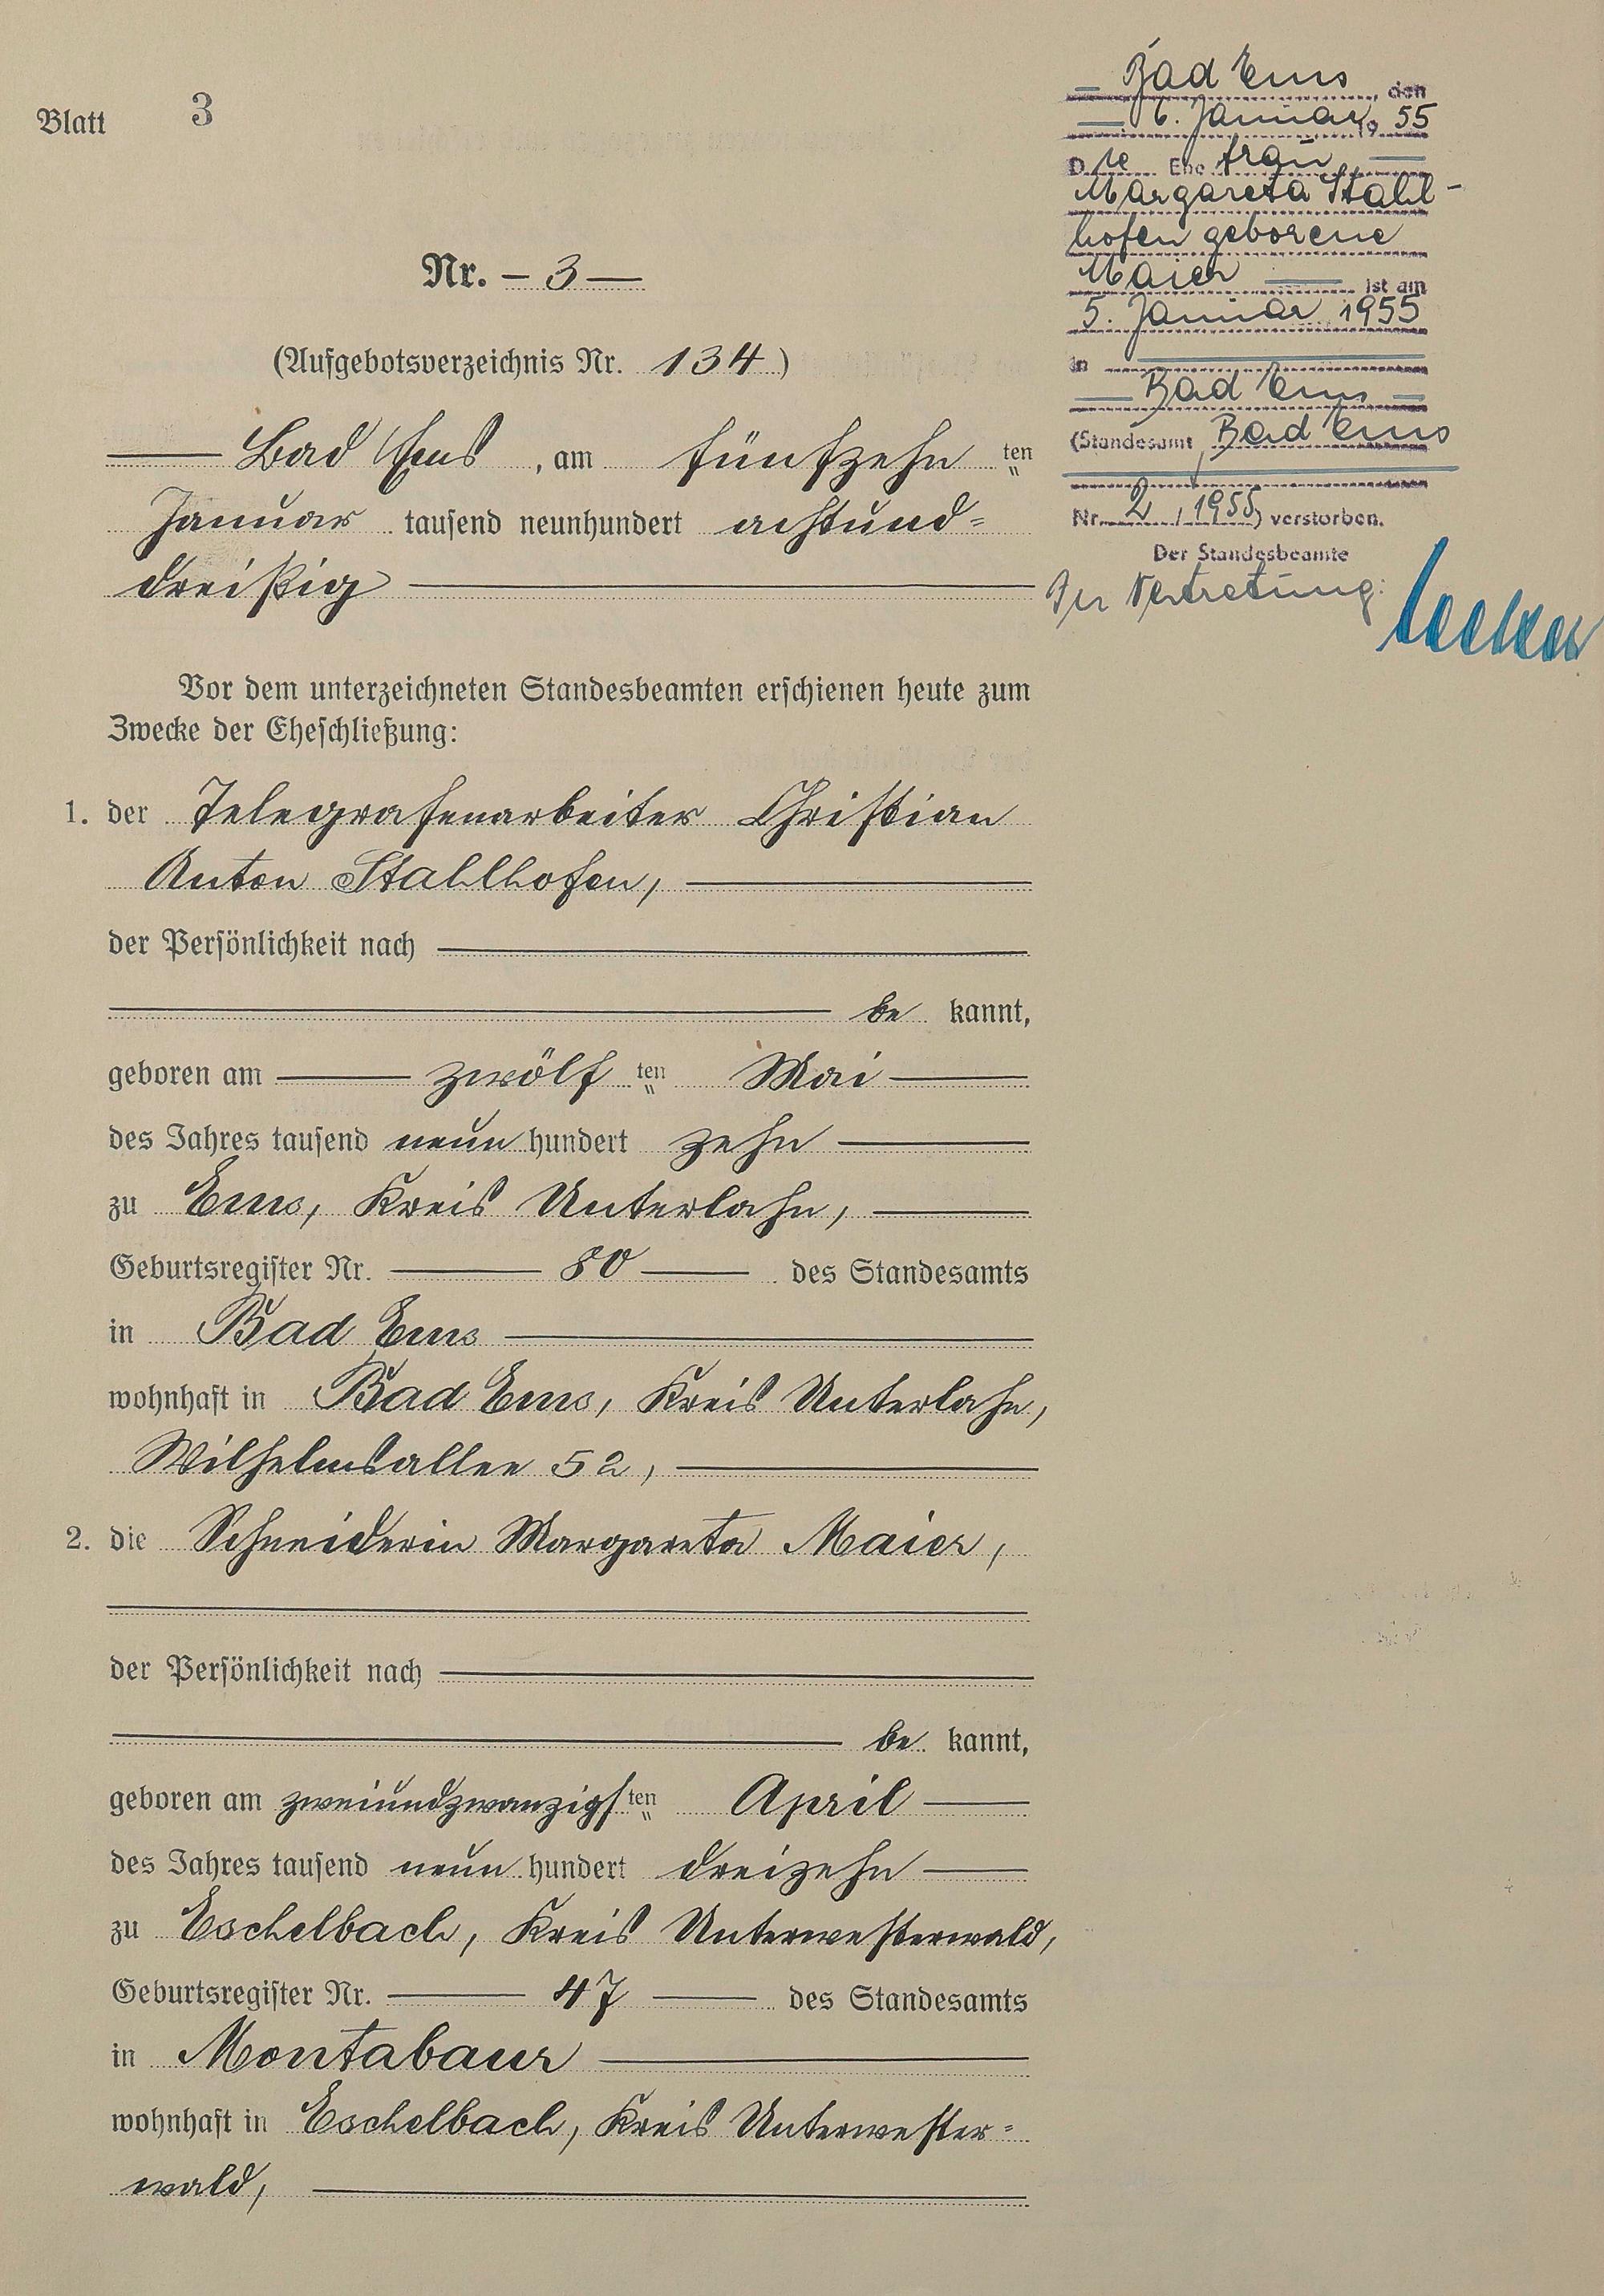 Blatt 3
Nr. – 3 —
(Aufgebotsverzeichnis Nr. 134)
Bad Ems, am fünfzehn ten
Januar tausend neunhundert achtund=
dreißig
Vor dem unterzeichneten Standesbeamten erschienen heute zum
Zwecke der Eheschließung:
1. der Telegrafenarbeiter Christian
Anton Stahlhofen,
der Persönlichkeit nach
be kannt,
geboren am zwölf ten Mai
des Jahres tausend neun hundert zehn
zu Ems, Kreis Unterlahn,
Geburtsregister Nr. 80 des Standesamts
in Bad Ems
wohnhaft in Bad Ems, Kreis Unterlahn,
Wilhelmsallee 52,
2. die Schneiderin Margareta Maier,
der Persönlichkeit nach
be kannt,
geboren am zweiundzwanzigs ten April
des Jahres tausend neun hundert dreizehn
zu Eschelbach, Kreis Unterwesterwald,
Geburtsregister Nr. 47 des Standesamts
in Montabaur
wohnhaft in Eschelbach, Kreis Unterwester=
wald,
Bad Ems, den
6. Januar 19 55
Die Ehe frau
Margareta Stahl-
hofen geborene
Maier ist am
5. Januar 1955
in
Bad Ems
(Standesamt Bad Ems
Nr. 2 / 1955) verstorben.
Der Standesbeamte
In Vertretung: